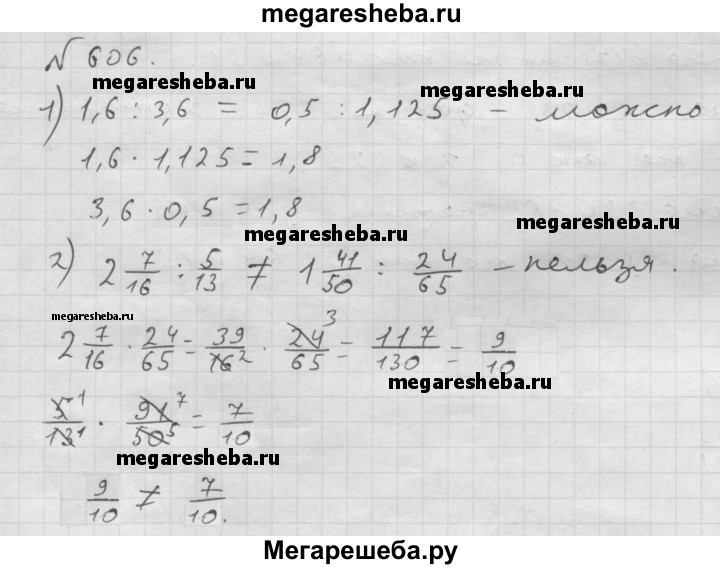 megaresheba.ru
№ 606.
megaresheba.ru megaresheba.ru
1) 1,6 : 3,6 = 0,5 : 1,125 – можно
1,6 · 1,125 = 1,8
3,6 · 0,5 = 1,8
megaresheba.ru megaresheba.ru
2) 2 7/16 : 5/13 ≠ 1 41/50 : 24/65 – нельзя.
megaresheba.ru
2 7/16 · 24/65 = 39/16 2 · 24 3/65 = 117/130 = 9/10
megaresheba.ru
5 1/13 1 · 91 7/50 5 = 7/10
megaresheba.ru
9/10 ≠ 7/10.
Мегарешеба.ру